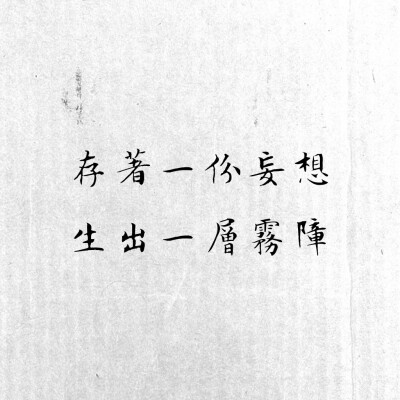 存著一份妄想
生出一層霧障